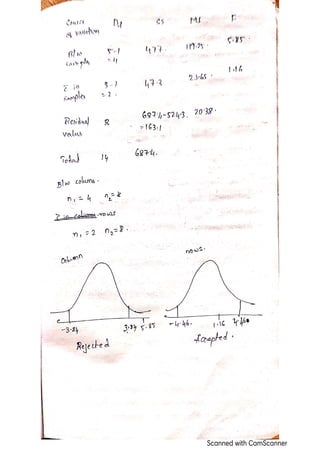 Source of variation Df CS MS F
B/w samples 5-1 =4 477. 119.25 5.85.
Σ in samples 3-1 =2. 47.3 23.65. 1.16
Residual values 8 687.4-524.3 20.38.
=163.1
Total 14 687.4.
B/w column.
n₁ = 4 n₂=8
Σ in column rows
n₁ = 2 n₂=8.
column rows.
-3.84 3.84 5.85 -4.46. 1.16 4.46
Rejected Accepted.
Scanned with CamScanner